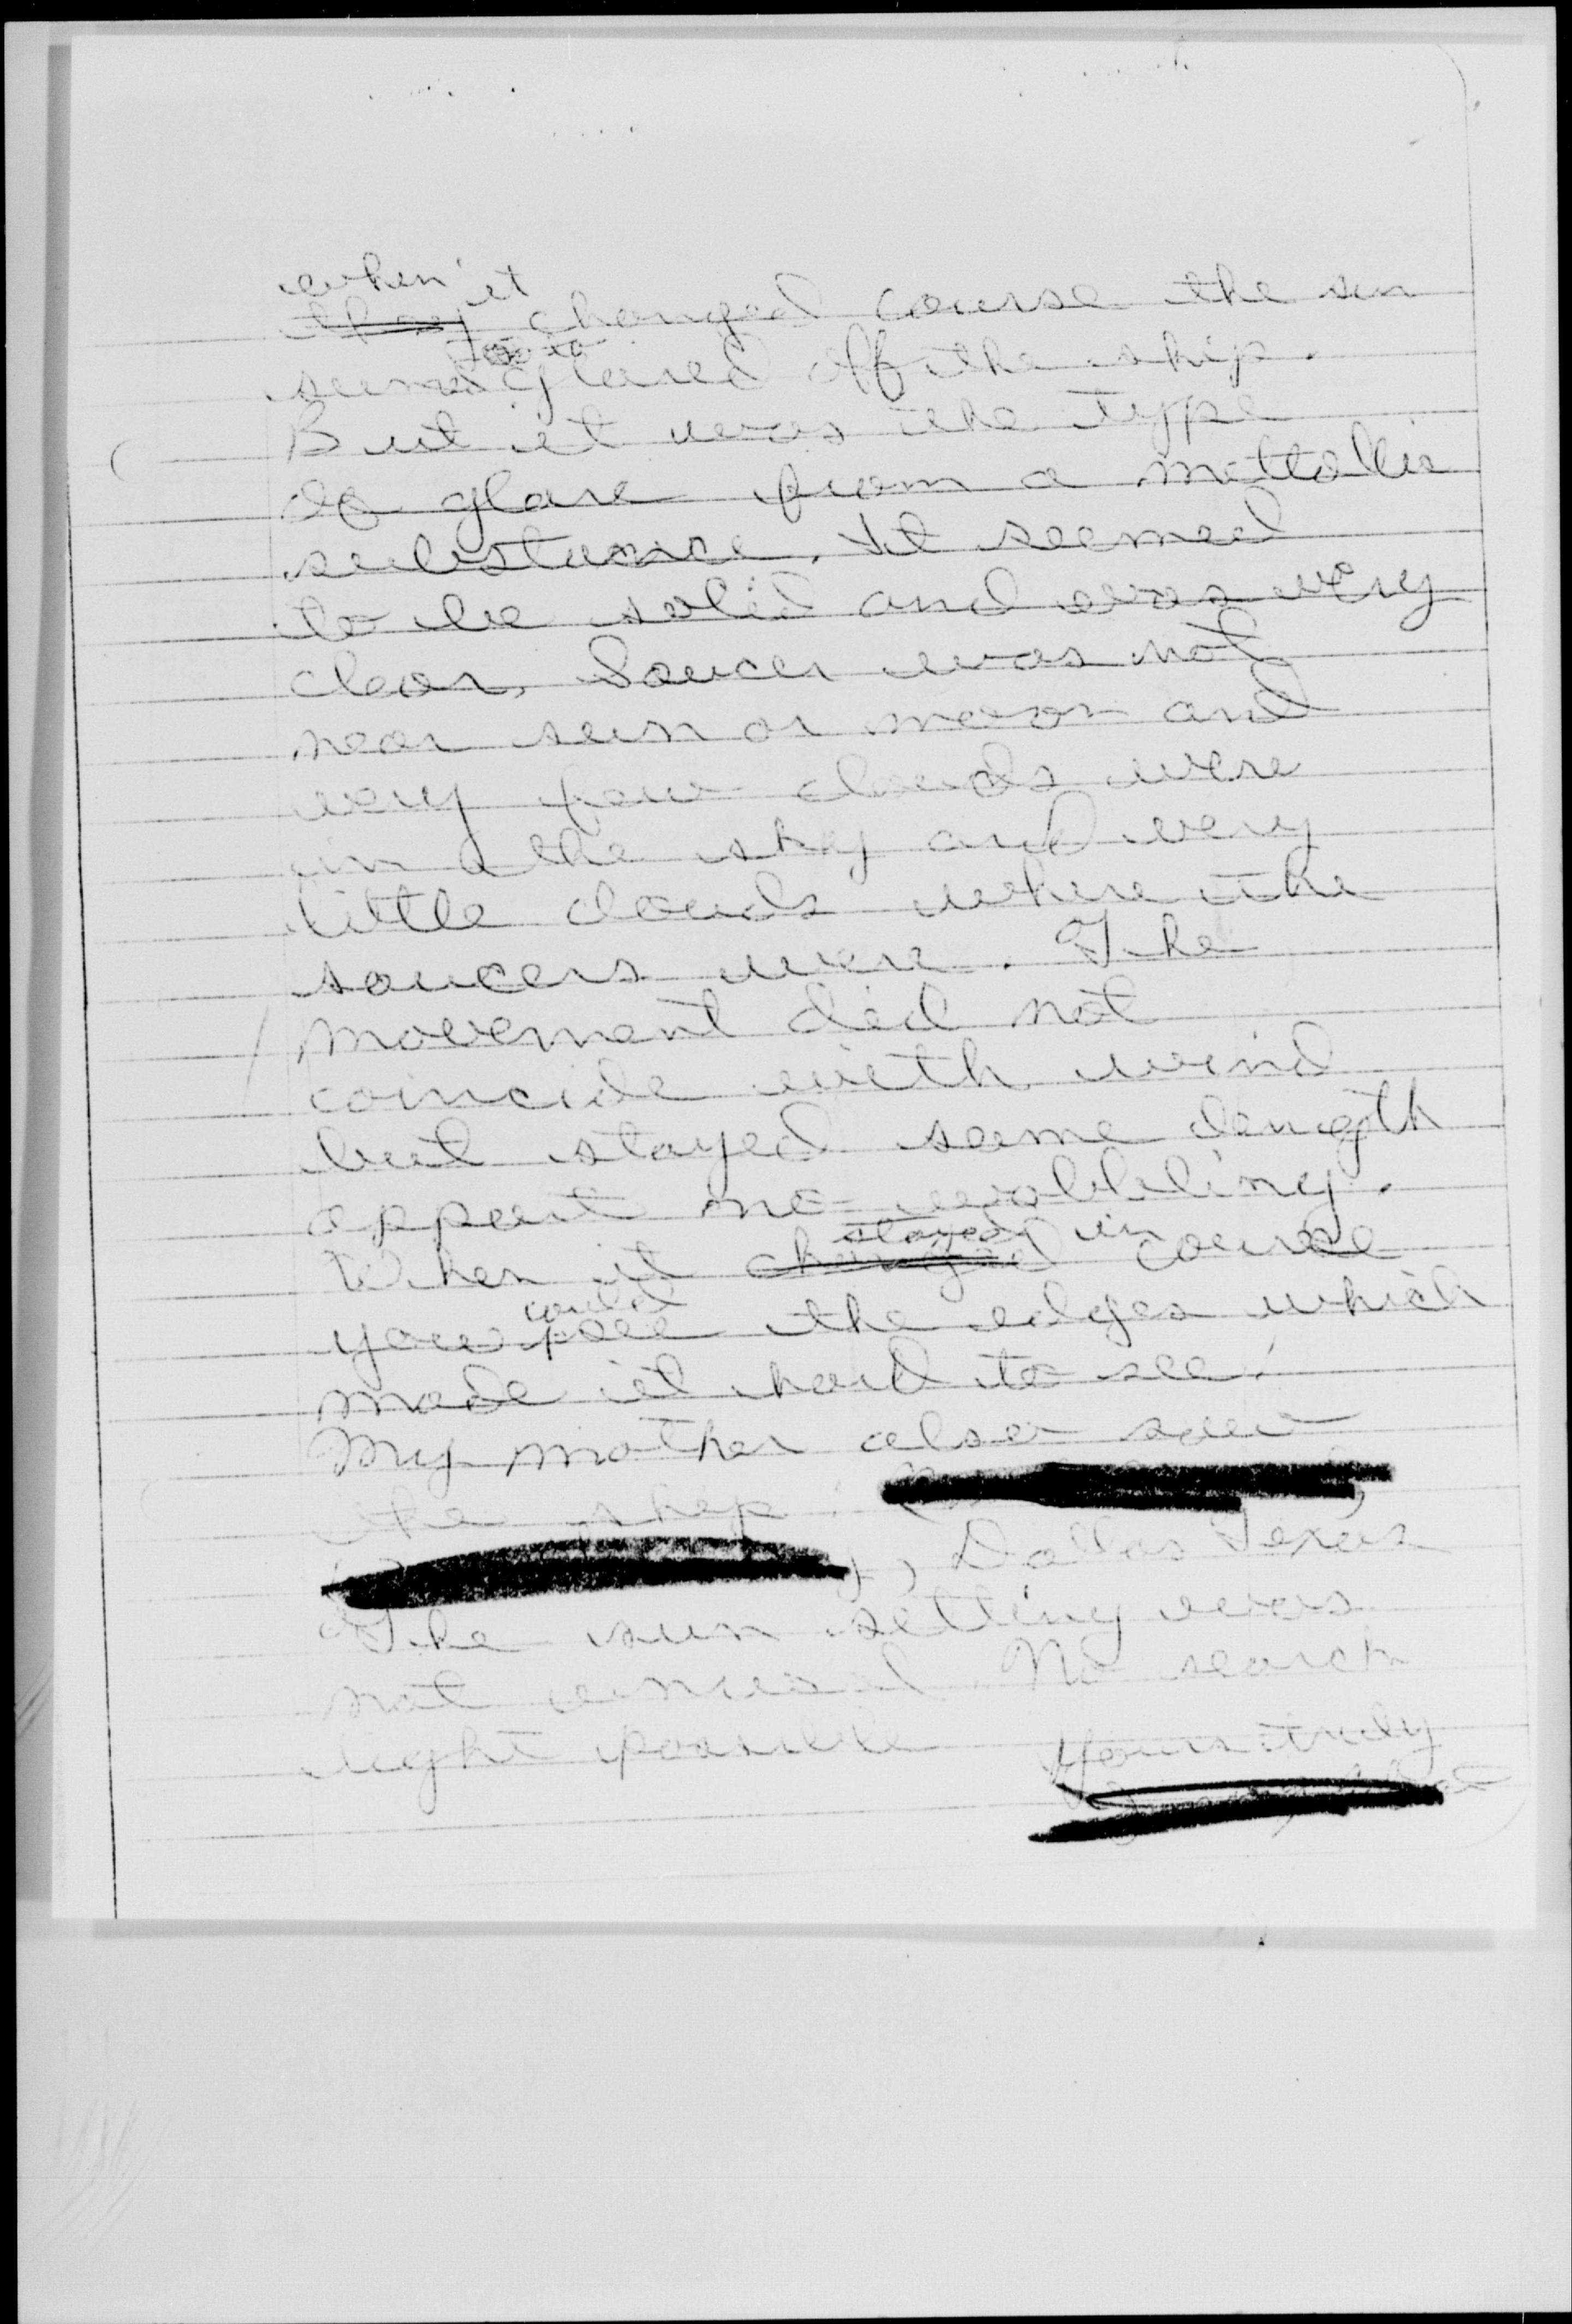 when it
they changed course the sun
seemed to glared off the ship.
But it was the type
of glare from a mettallic
substance. It seemed
to be solid and was very
clear. Saucer was not
near sun or moon and
very few clouds were
in the sky and very
little clouds where the
saucers were. The
movement did not
coincide with wind
but stayed same length
appart no wobbling.
When it changed stayed in course
you could see the edges which
made it hard to see.
My mother also saw
the ship.
, Dallas Texas
The sun setting was
not unusual. No search
light possible
Yours truly